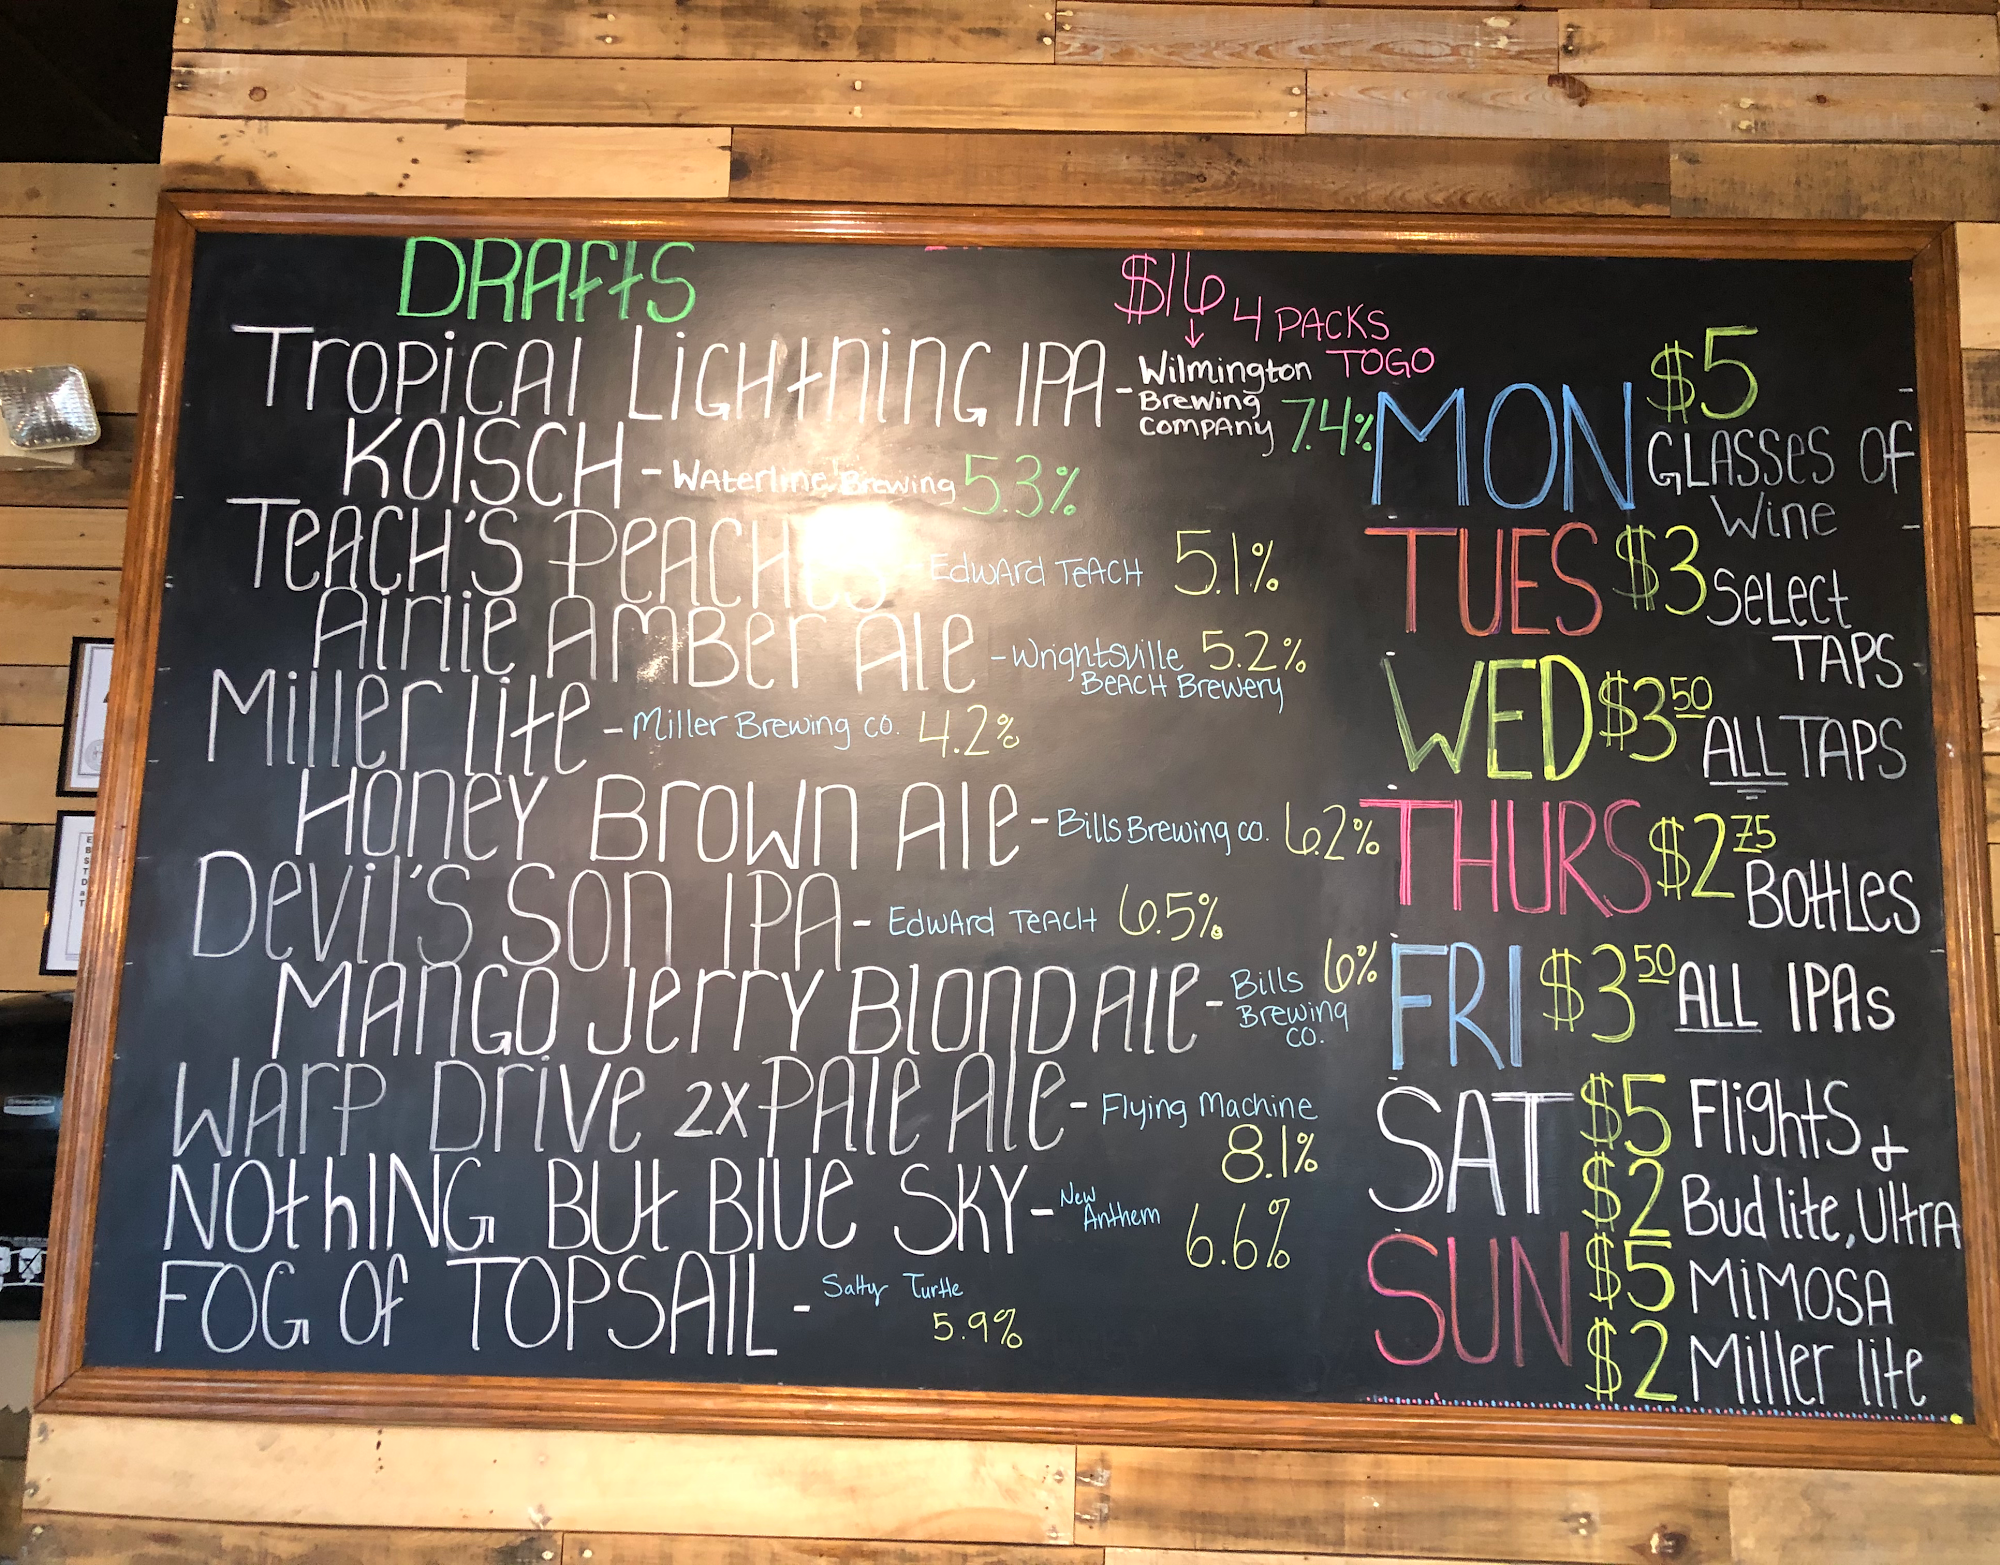 DRAftS
$16 4 PACKS TOGO
Tropical Lightning IPA - Wilmington Brewing Company 7.4%
KOlSCH - Waterline Brewing 5.3%
Teach's Peaches Edward Teach 5.1%
Airlie Amber Ale - Wrightsville Beach Brewery 5.2%
Miller lite - Miller Brewing co. 4.2%
Honey Brown Ale - Bills Brewing co. 6.2%
Devil's Son IPA - Edward Teach 6.5%
Mango Jerry Blond Ale - Bills Brewing co. 6%
Warp Drive 2x Pale Ale - Flying Machine 8.1%
NOthING BUt BlUe SKY - New Anthem 6.6%
FOG Of TOPSAIL - Salty Turtle 5.9%
MON $5 GLASSes OF Wine
TUES $3 Select TAPS
WED $3.50 ALL TAPS
THURS $2.75 Bottles
FRI $3.50 ALL IPAs
SAT $5 Flights &
$2 Bud lite, Ultra
SUN $5 MiMOSA
$2 Miller lite